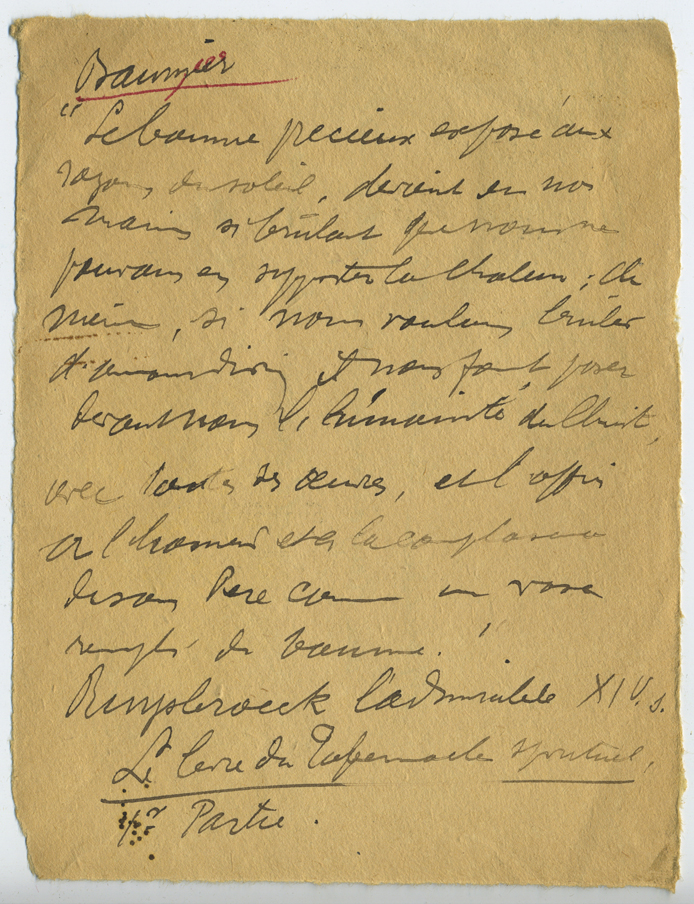 Baumier
"Le baume précieux exposé aux
rayons du soleil, devient en nos
mains si brûlant que nous ne
pouvons en supporter la chaleur ; de
même, si nous voulons brûler
d'amour divin, il nous faut poser
devant nous l'humanité du Christ,
avec toutes ses œuvres, et l'offrir
à l'honneur et à la complaisance
de son Père comme un vase
rempli de baume."
Ruysbroeck l'admirable XIV s.
Le livre du Tabernacle spirituel,
1re Partie.